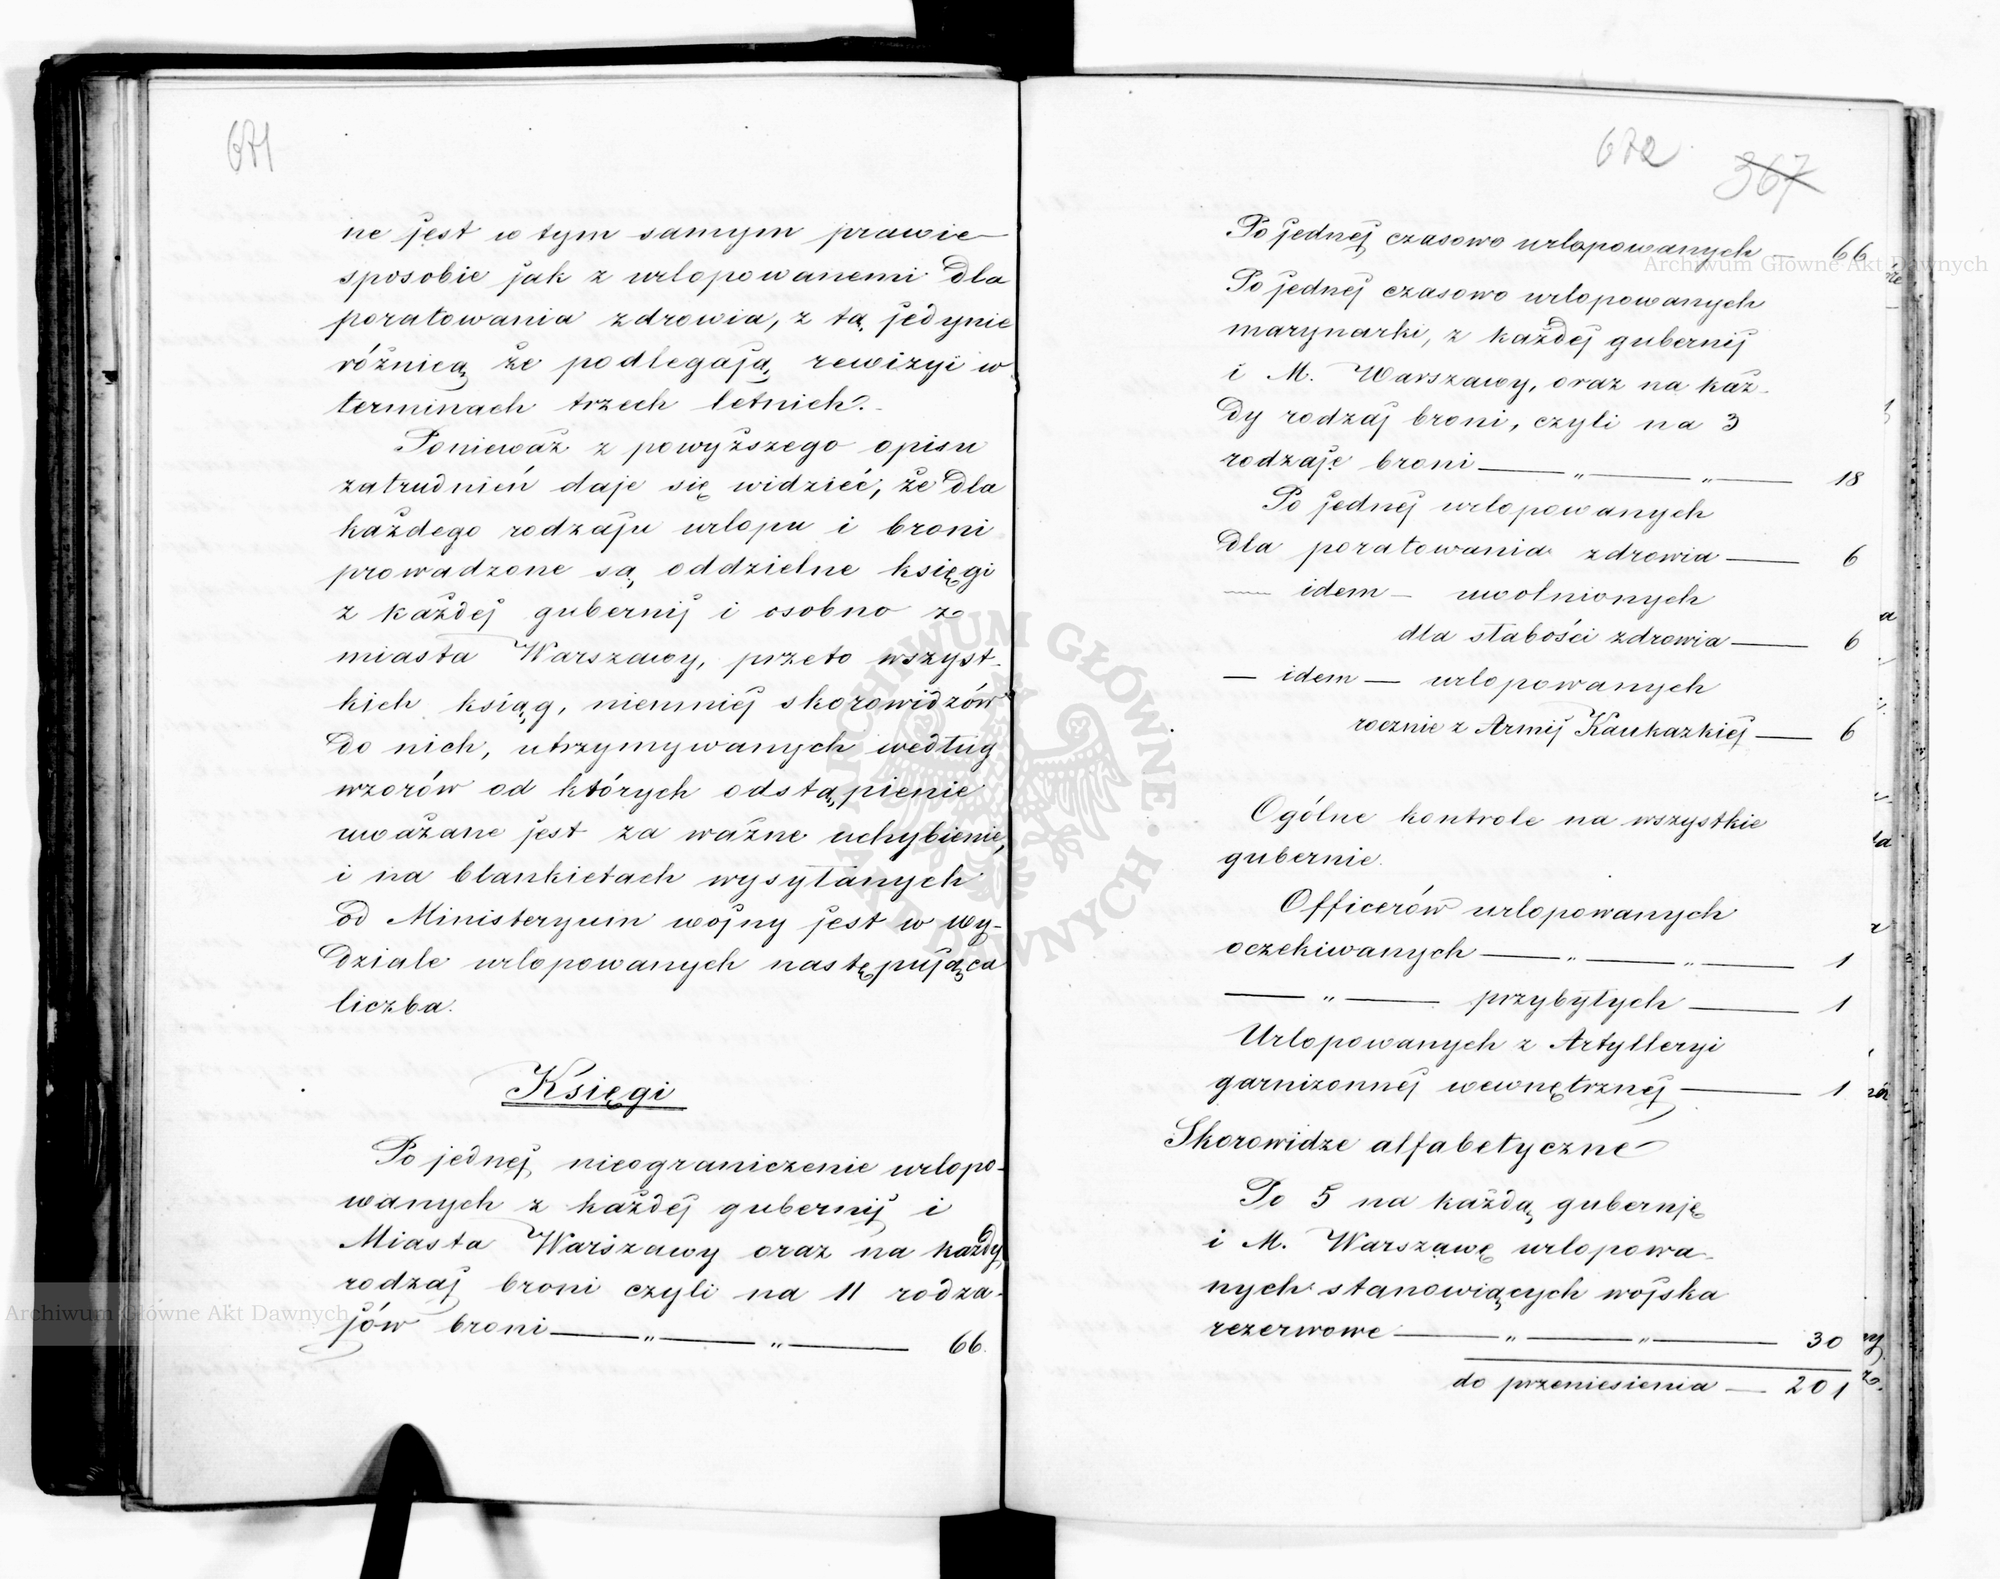 671
ne jest w tym samym prawie
sposobie jak z urlopowanemi dla
poratowania zdrowia, z tą jedynie
różnicą że podlegają rewizyi w
terminach trzech letnich.
Ponieważ z powyższego opisu
zatrudnień daje się widzieć, że dla
każdego rodzaju urlopu i broni
prowadzone są oddzielne księgi
z każdej gubernij i osobno z
miasta Warszawy, przeto wszyst-
kich ksiąg, niemniej skorowidzów
do nich, utrzymywanych według
wzorów od których odstąpienie
uważane jest za ważne uchybienie,
i na blankietach wysyłanych
od Ministeryum wojny jest w wy-
dziale urlopowanych następująca
liczba.
Księgi
Po jednej, nieograniczenie urlopo-
wanych z każdej gubernij i
Miasta Warszawy oraz na każdy
rodzaj broni czyli na 11 rodza-
jów broni — „ — „ — 66.
672 367
Po jednej czasowo urlopowanych — 66
Po jednej czasowo urlopowanych
marynarki, z każdej gubernij
i M. Warszawy, oraz na każ-
dy rodzaj broni, czyli na 3
rodzaje broni — „ — „ — 18
Po jednej urlopowanych
dla poratowania zdrowia — 6
— idem — uwolnionych
dla słabości zdrowia — 6
— idem — urlopowanych
rocznie z Armij Kaukazkiej — 6
Ogólne kontrole na wszystkie
gubernie.
Officerów urlopowanych
oczekiwanych — „ — „ — 1
— „ — przybyłych — 1
Urlopowanych z Artylleryi
garnizonnej wewnętrznej — 1
Skorowidze alfabetyczne
Po 5 na każdą gubernję
i M. Warszawę urlopowa-
nych stanowiących wojska
rezerwowe — „ — „ — 30
do przeniesienia — 201
Archiwum Główne Akt Dawnych
Archiwum Główne Akt Dawnych
ARCHIWUM GŁÓWNE AKT DAWNYCH